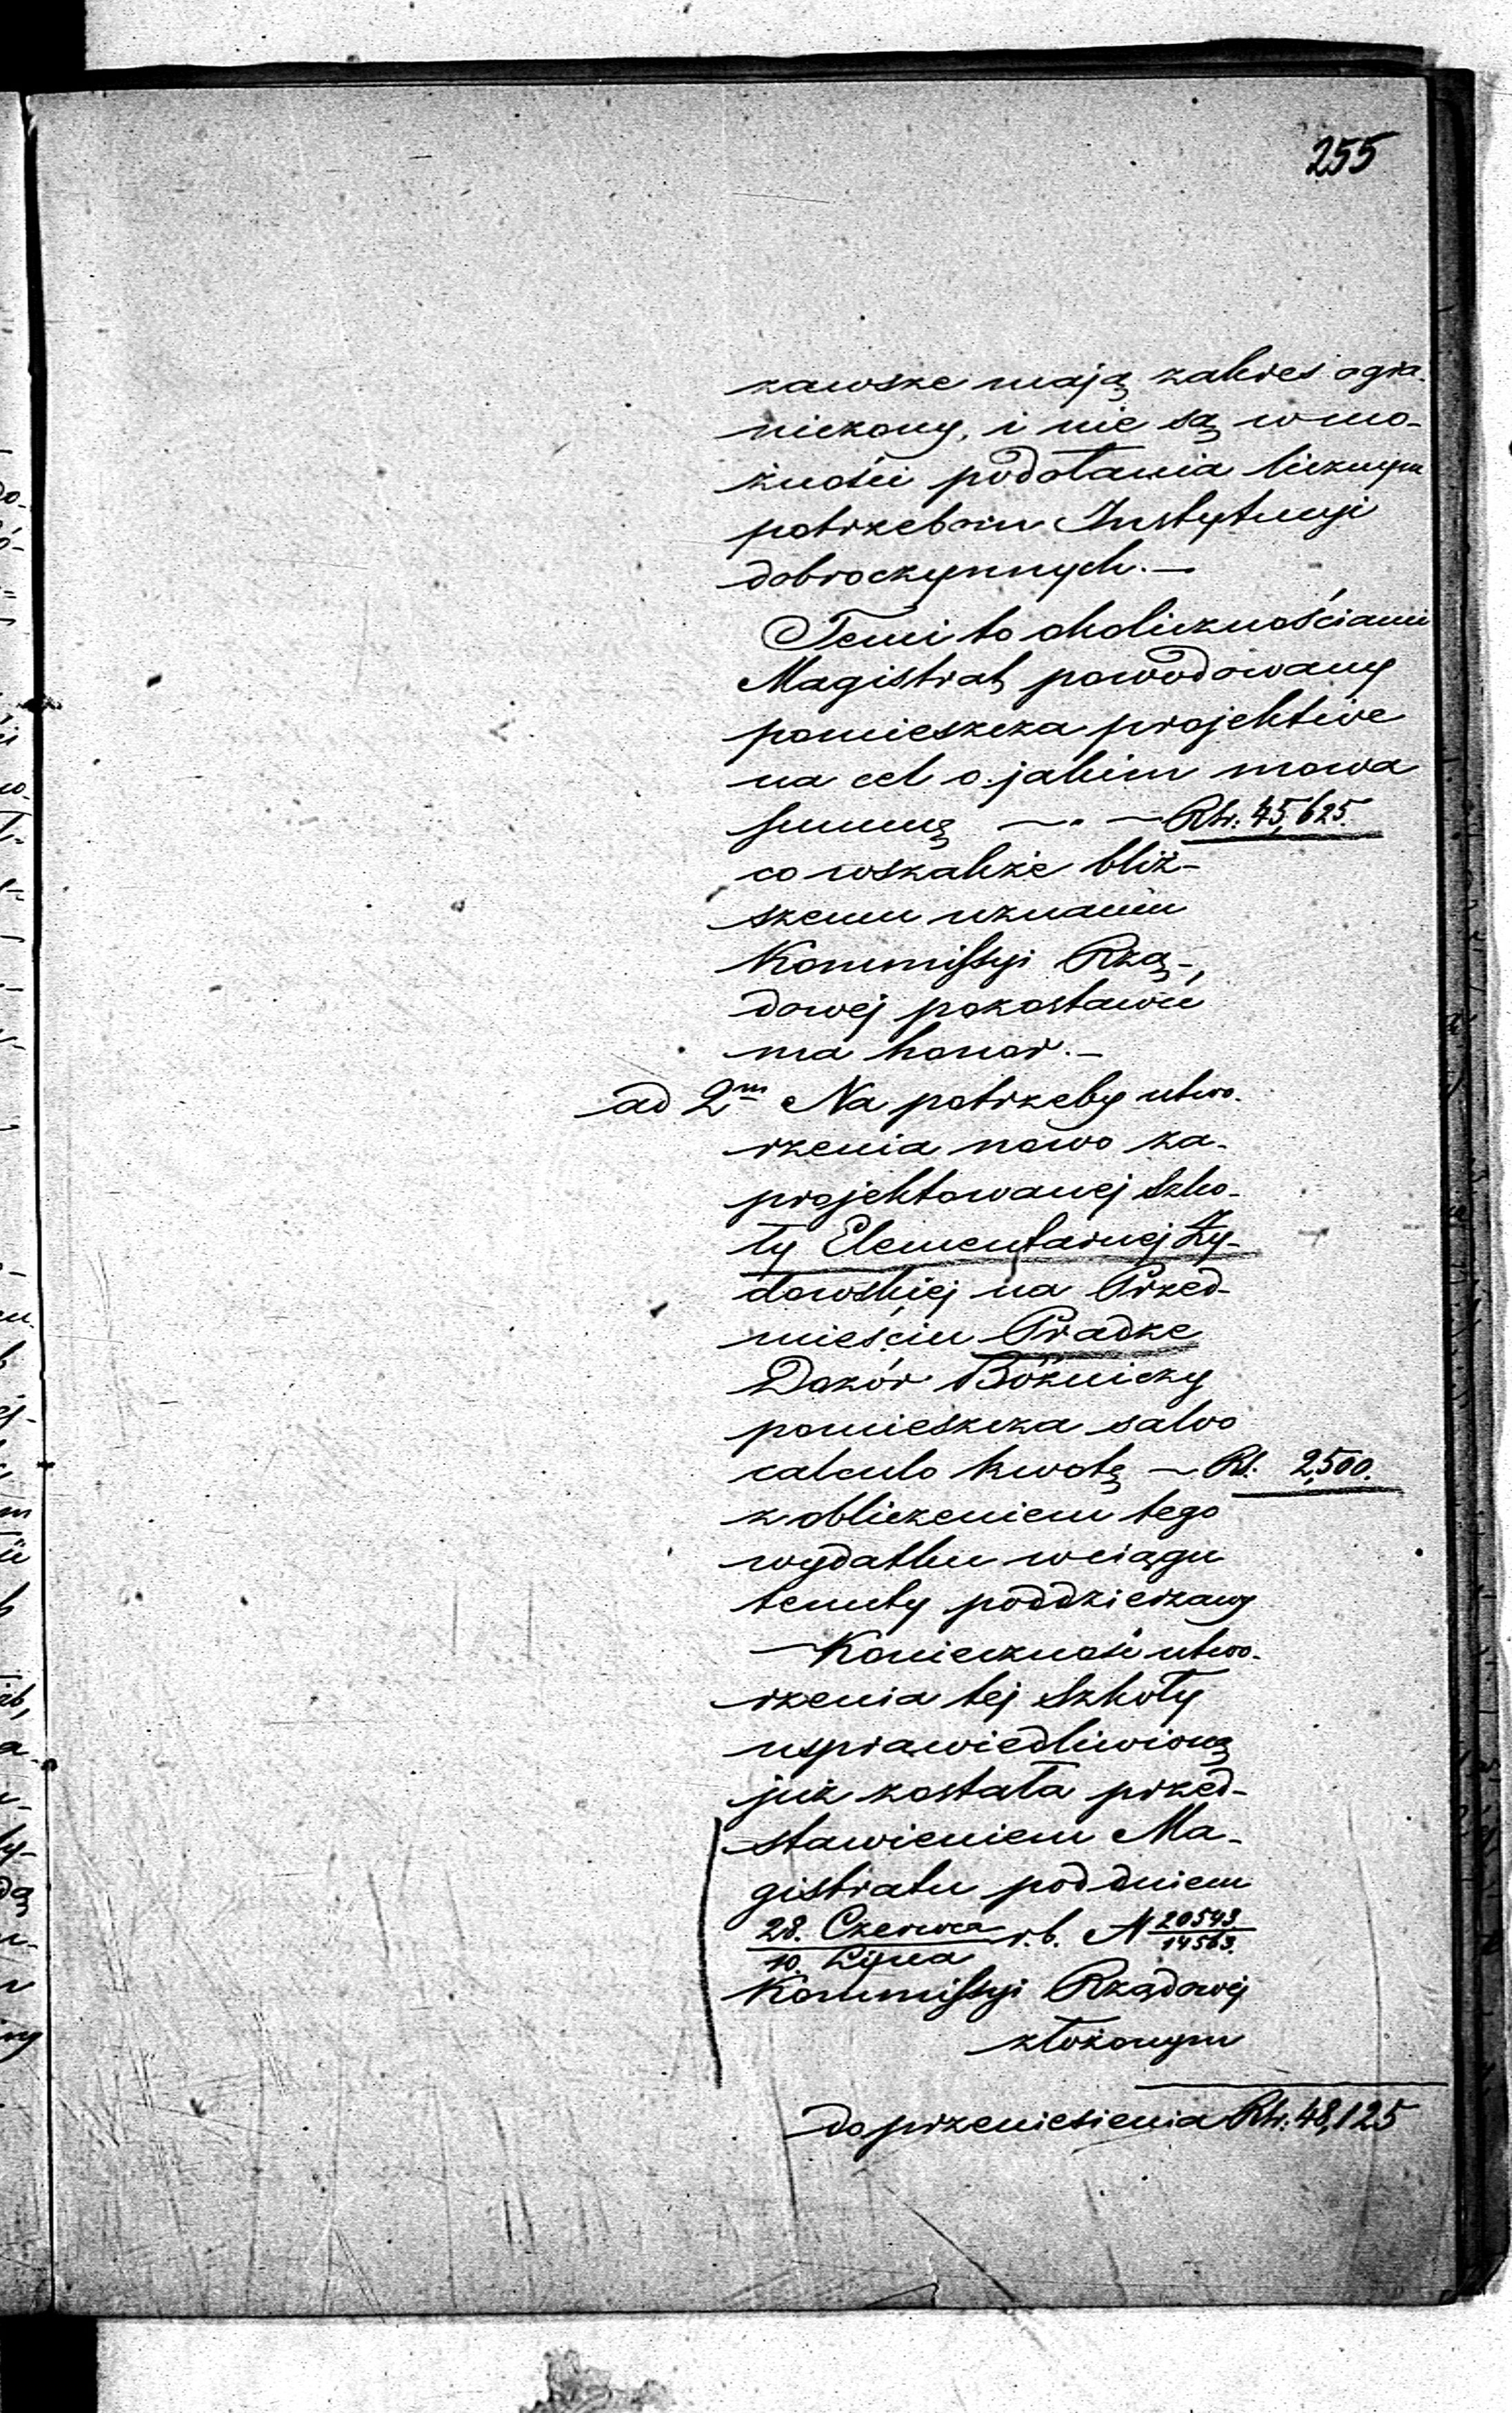 255
zawsze mają zakres ogra-
niczony, i nie są w mo-
żności podołania licznym
potrzebom Instytucyi
dobroczynnych. —
Temi to okolicznościami
Magistrat powodowany
pomieszcza projektive
na cel o jakim mowa
summę — " — Rbr. 45,625.
co wszakże bliż-
szemu uznaniu
Kommissyi Rzą-
dowej pozostawić
ma honor. —
ad 2m Na potrzeby utwo-
rzenia nowo za-
projektowanej Szko-
ły Elementarnej Ży-
dowskiej na Przed-
mieściu Pradze
Dozór Bóżniczy
pomieszcza salvo
calculo kwotę — Rs. 2,500.
z obliczeniem tego
wydatku w ciągu
tenuty poddzierzawy
— Konieczność utwo-
rzenia tej Szkoły
usprawiedliwioną
już została przed-
stawieniem Ma-
gistratu pod dniem
28. Czerwca / 10. Lipca r. b. N 20543 / 14563.
Kommissyi Rządowej
złożonym
do przeniesienia Rbr. 48,125